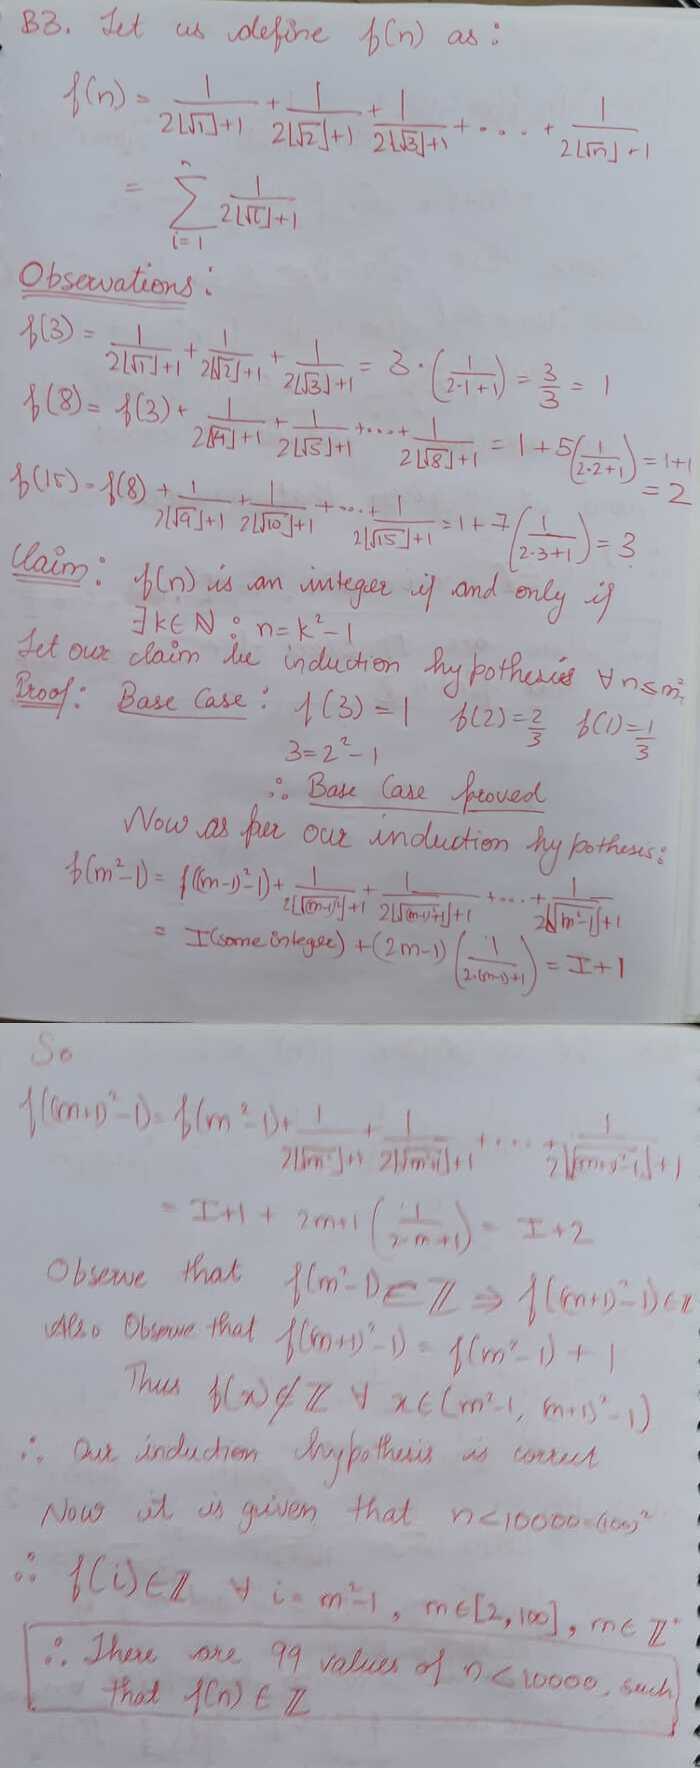 B3. Let us define f(n) as:
f(n) = 1/(2⌊√1⌋+1) + 1/(2⌊√2⌋+1) + 1/(2⌊√3⌋+1) + .... + 1/(2⌊√n⌋+1)
= Σ_{i=1}^{n} 1/(2⌊√i⌋+1)
Observations:
f(3) = 1/(2⌊√1⌋+1) + 1/(2⌊√2⌋+1) + 1/(2⌊√3⌋+1) = 3·(1/(2·1+1)) = 3/3 = 1
f(8) = f(3) + 1/(2⌊√4⌋+1) + 1/(2⌊√5⌋+1) + .... + 1/(2⌊√8⌋+1) = 1 + 5(1/(2·2+1)) = 1+1
= 2
f(15) = f(8) + 1/(2⌊√9⌋+1) + 1/(2⌊√10⌋+1) + ... + 1/(2⌊√15⌋+1) = 1 + 7(1/(2·3+1)) = 3
Claim: f(n) is an integer if and only if
∃ k ∈ N : n = k²-1
Let our claim be induction hypothesis ∀ n ≤ m²
Proof: Base Case: f(3) = 1 f(2) = 2/3 f(1) = 1/3
3 = 2²-1
∴ Base Case proved
Now as per our induction hypothesis:
f(m²-1) = f((m-1)²-1) + 1/(2⌊√(m-1)²⌋+1) + 1/(2⌊√(m-1)²+1⌋+1) + .... + 1/(2⌊√m²-1⌋+1)
= I(some integer) + (2m-1)(1/(2·(m-1)+1)) = I+1
So
f((m+1)²-1) = f(m²-1) + 1/(2⌊√m²⌋+1) + 1/(2⌊√m²+1⌋+1) + .... + 1/(2⌊√(m+1)²-1⌋+1)
= I+1 + 2m+1(1/(2·m+1)) = I+2
Observe that f(m²-1) ∈ Z ⇒ f((m+1)²-1) ∈ Z
Also Observe that f((m+1)²-1) = f(m²-1) + 1
Thus f(x) ∉ Z ∀ x ∈ (m²-1, (m+1)²-1)
∴ Our induction hypothesis is correct
Now it is given that n < 10000 = (100)²
∴ f(i) ∈ Z ∀ i = m²-1, m ∈ [2,100], m ∈ Z⁺
∴ There are 99 values of n < 10000, such
that f(n) ∈ Z